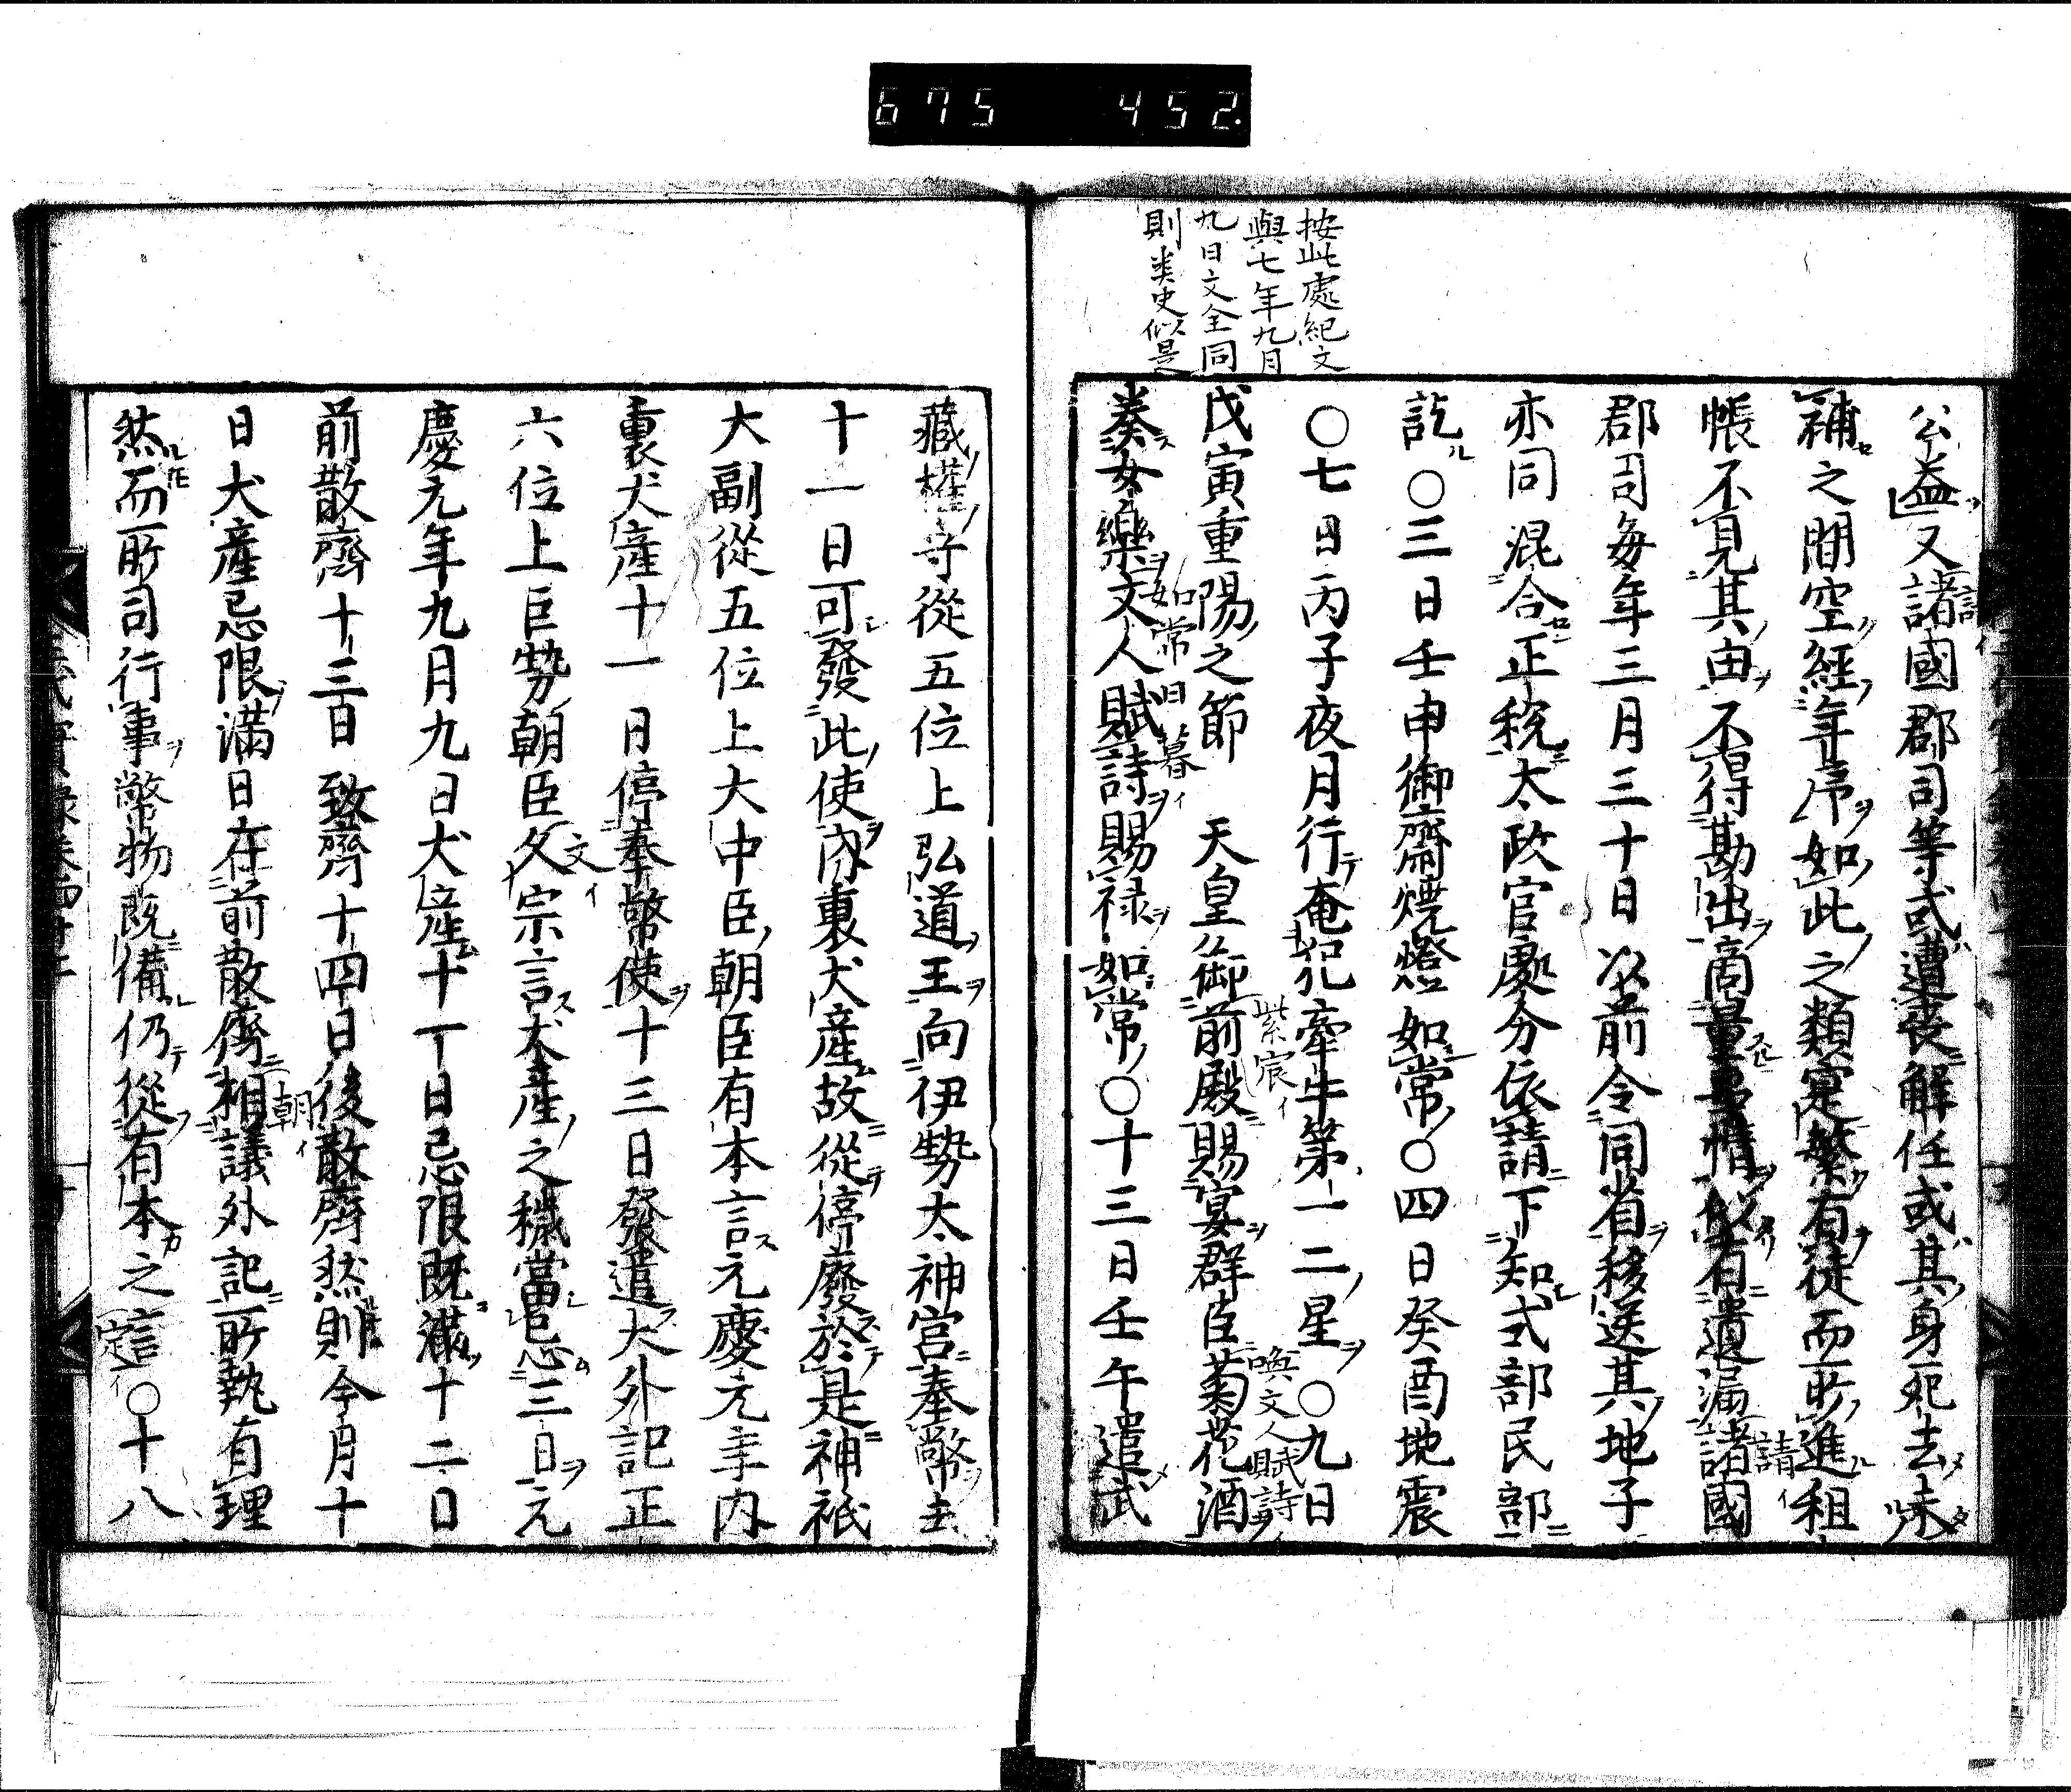 675 452.
按此處紀文
與七年九月
九日文全同
則类史似是
公益又諸國郡司等或遭喪解任或其身死去未
補之間空經年序如此之類寔繁有徒而所進租
帳不見其由不得勘出啇量事情似有遺漏諸國
郡司每年三月三十日以前令同省移送其地子
亦同混合正税太政官處分依請下知式部民部
訖〇三日壬申御齋燒燈如常〇四日癸酉地震
〇七日丙子夜月行奄犯牽牛第一二星〇九日
戊寅重陽之節 天皇御前殿賜宴群臣菊花酒
奏女樂文人賦詩賜禄如常〇十三日壬午遣武
如常日暮イ
紫宸イ
喚文人賦詩イ
請イ
藏權守從五位上弘道王向伊勢太神宮奉幣去
十一日可發此使内裏犬產故從停廢於是神祇
大副從五位上大中臣朝臣有本言元慶元年内
裏犬產十一日停奉幣使十三日發遣大外記正
六位上巨勢朝臣夂宗言犬產之穢當忌三日元
文イ
慶元年九月九日犬產十一日忌限既滿十二日
前散齊十三日致齊十四日後散齊然則今月十
日犬產忌限滿日在前散齊相議外記所執有理
朝イ
然而所司行事幣物既備仍從有本之言〇十八
定イ